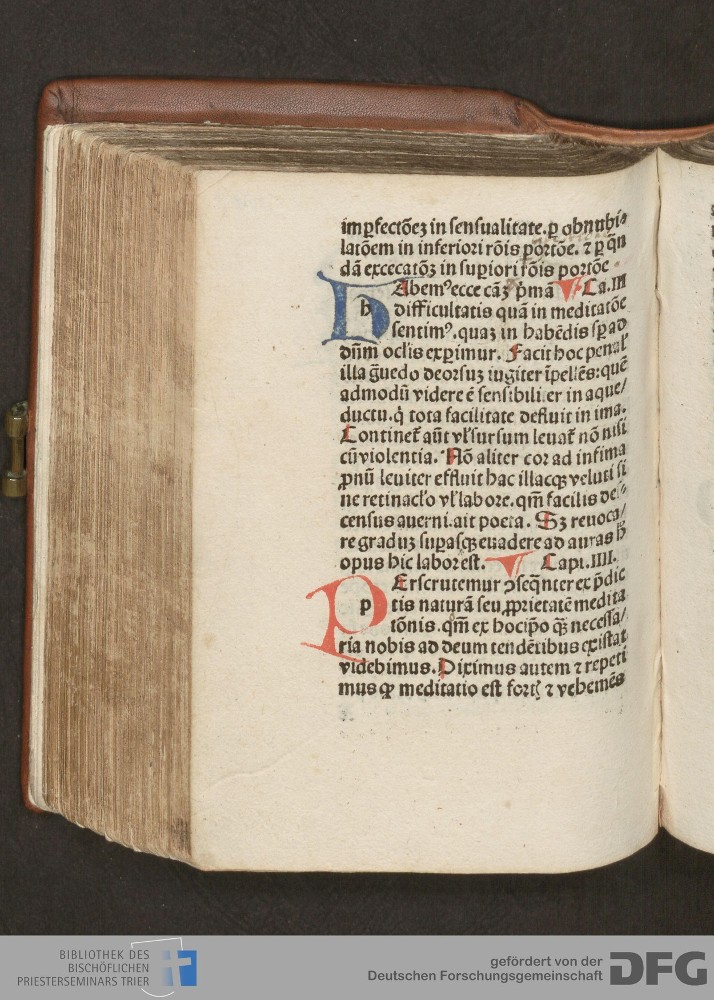 imꝑfectõeꝫ in sensualitate. ꝑ obnubi⸗
latõem in inferiori rõis portõe. ⁊ ꝑ qñ
dã excecatõꝫ in suꝑiori rõis portõe
HAbemꝰ ecce cãꝫ pͥmã Ca. III
h difficultatis quã in meditatõe
sentimꝰ. quaꝫ in habẽdis sꝑ ad
dñm oclis exprimur. Facit hoc penal'
illa g̃uedo deorsuꝫ iugiter ĩpellẽs: quẽ
admodũ videre ẽ sensibiliter in aque/
ductu. q̇ tota facilitate defluit in ima.
Continet᷑ aũt vl' sursum leuat᷑ nõ nisi
cũ violentia. Nõ aliter cor ad infima
ꝓnũ leuiter effluit hac illacqꝫ veluti si
ne retinacl'o vl' labore. qm̃ facilis des⸗
census auerni. ait poeta. Sꝫ reuoca/
re graduꝫ suꝑasqꝫ euadere ad auras h̾
opus hic labor est. Capi. IIII.
PErscrutemur ꝯseq̃nter ex p̃dic
p tis naturã seu ꝓprietatẽ medita
tõnis. qm̃ ex hoc ip̃o q̃ꝫ necessa/
ria nobis ad deum tendẽtibus existat
videbimus. Diximus autem ⁊ repeti
mus ꝙ meditatio est fortꝭ ⁊ vehemẽs
BIBLIOTHEK DES
BISCHÖFLICHEN
PRIESTERSEMINARS TRIER
gefördert von der
Deutschen Forschungsgemeinschaft
DFG